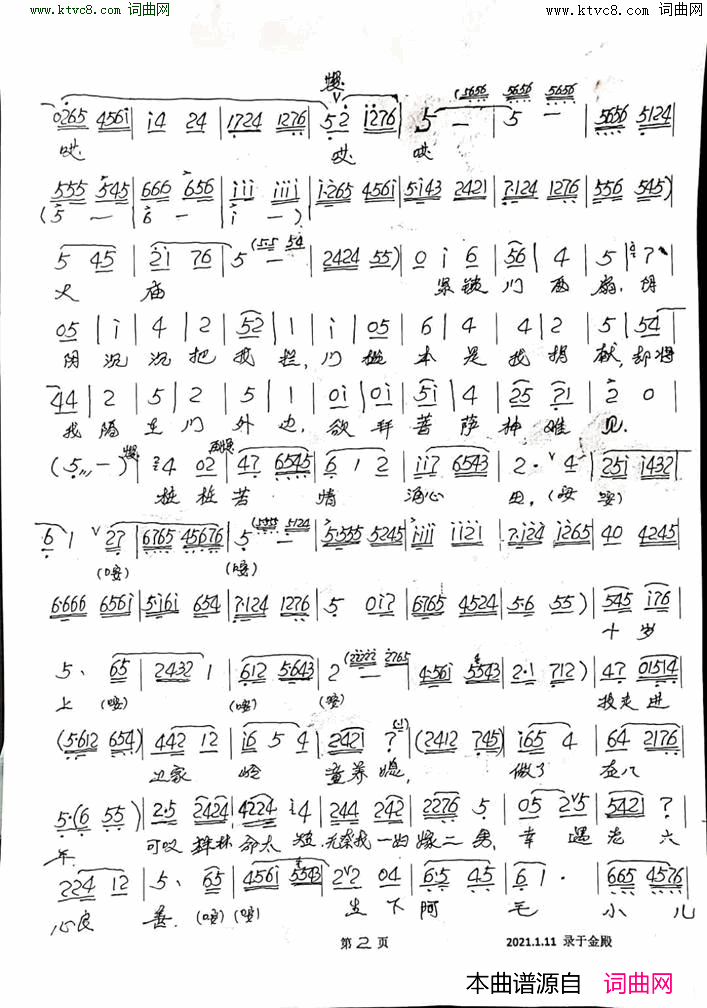 www.ktvc8.com 词曲网 www.ktvc8.com 词曲网
慢
(5656 5656 5656
0265 4561 | i4 24 | 1724 1276 | 52 1276 | 5 — | 5 — | 5656 5124 |
哎 哎 哎
555 545 | 666 656 | iii iiii | i·265 4561 | 5·i43 2421 | 7·124 1276 | 556 545) |
(5 — | 6 — | i —)
5 45 | 2i 76 | 5 — | 2424 55) | 0 i 6 | 56 | 4 | 5 | 7 |
大 庙 紧锁 门 两 扇, 阴
05 | i | 4 | 2 | 52 | 1 | i | 05 | 6 | 4 | 4 | 2 | 5 | 54 |
阴 沉 沉 把 我 拦, 门 槛 本 是 我 捐 献, 却将
44 | 2 | 5 | 2 | 5 | 1 | 0i | 0i | 5i | 4 | 25 | 71 | 2 0 |
我 隔 在 门 外 边, 欲 拜 菩 萨 神 难 见.
(5 —) | 4 02 | 47 6545 | 6 1 2 | ii7 6543 | 2· 4 | 225i i432 |
桩 桩 苦 情 涌心 田, (哎 哎)
6 1 27 | 6765 45676 | 5 — | 5·555 5245 | iiii ii2i | 7·i24 i265 | 40 4245 |
(哎) (哎)
6·666 656i | 5·i6i 654 | 7·124 1276 | 5 0i7 | 6765 4524 | 5·6 55) | 545 i76 |
十 岁
5、 65 | 2432 1 | 612 5643 | 2 — | 4·56i 5543 | 2·1 712) | 47 01514 |
上 (哎) (哎) (哎) 我走进
(5·612 654) | 442 12 | i6 5 4 | 2421 7 | (2412 745) | i65 4 | 64 2176 |
卫家 岭 童养媳, 做了 在八
5·(6 55) | 2·5 2424 | 4224 4 | 244 242 | 2276 5 | 05 25 | 5421 7 |
年. 可叹 祥林 命太 短, 无奈我 一妇 嫁二 男, 幸 遇 老 六
224 12 | 5、 65 | 456i 5543 | 2 2 04 | 6·5 45 | 6 1· | 665 4576 |
心良 善. (哎) (哎) 生下 阿 毛 小 儿
第 2 页 2021.1.11 录于金殿
本曲谱源自 词曲网